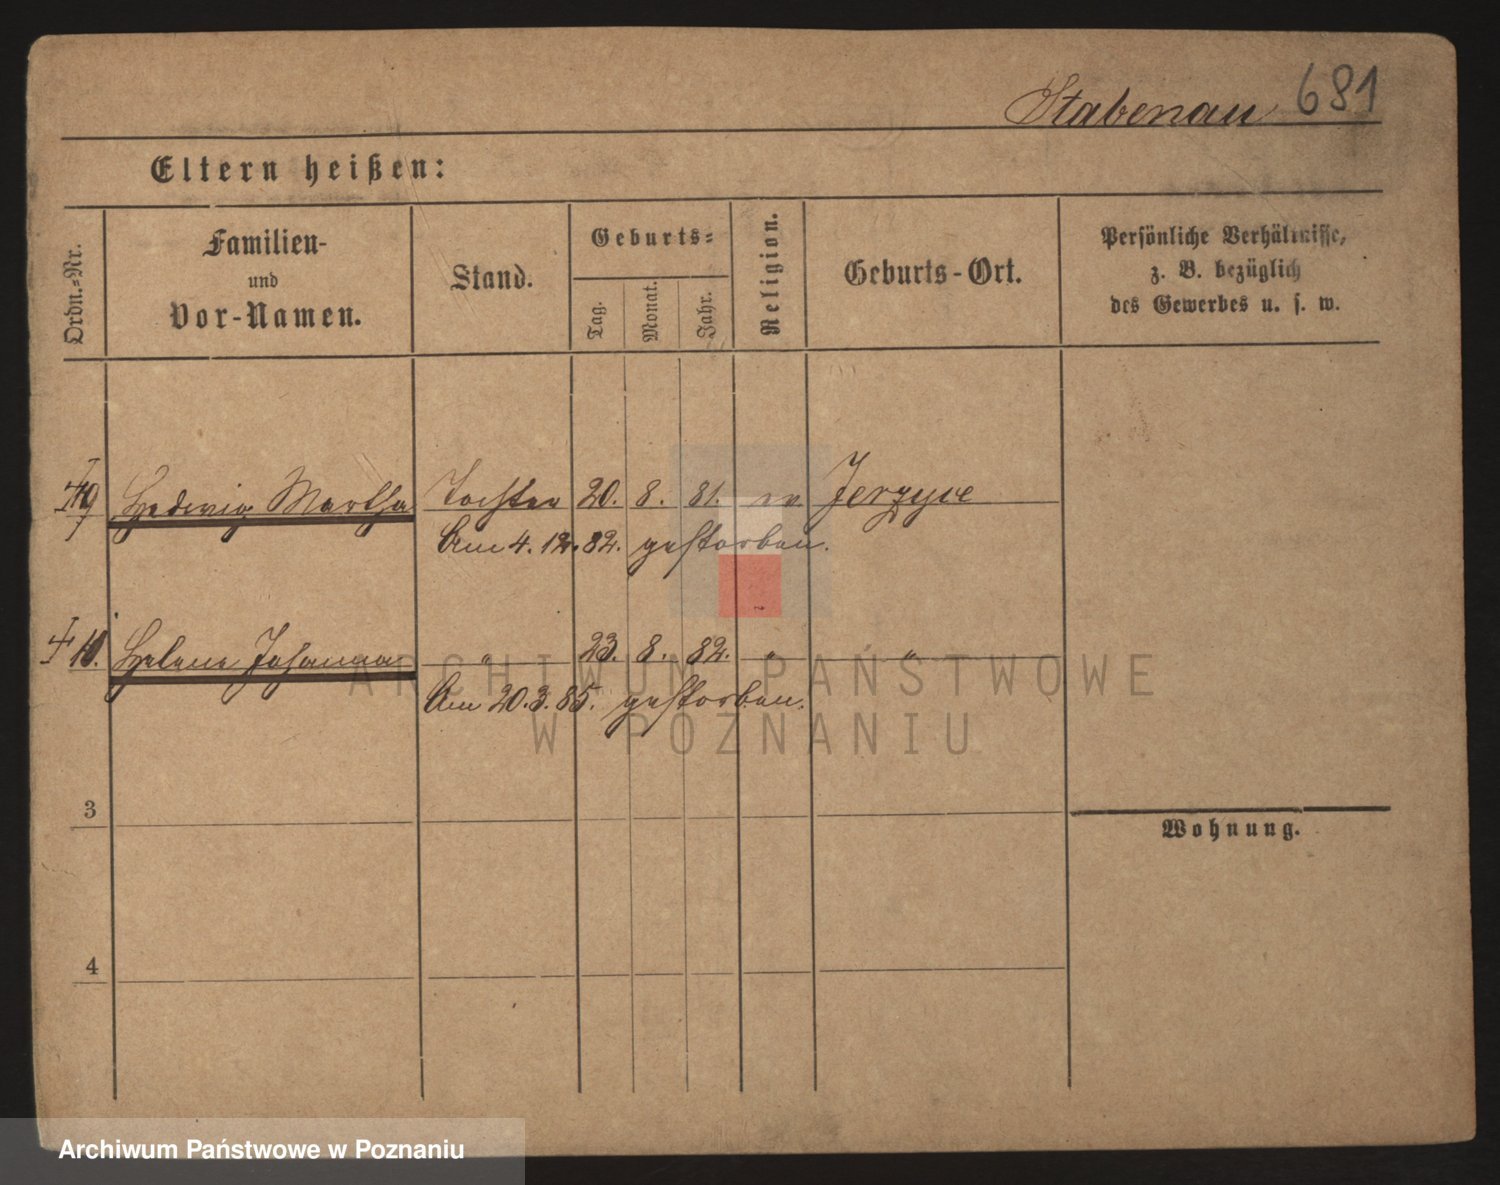 Stabenau 681
Eltern heißen:
Ordn.-Nr.
Familien-
und
Vor-Namen.
Stand.
Geburts-
Tag.
Monat.
Jahr.
Religion.
Geburts-Ort.
Persönliche Verhältnisse,
z. B. bezüglich
des Gewerbes u. s. w.
9 Hedwig Martha Tochter 20. 8. 81. ev. Jerzyce
Am 4. 12. 82. gestorben.
10. Helene Johanna " 23. 8. 82. " "
Am 20. 3. 85. gestorben.
3
Wohnung.
4
ARCHIWUM PAŃSTWOWE
W POZNANIU
Archiwum Państwowe w Poznaniu